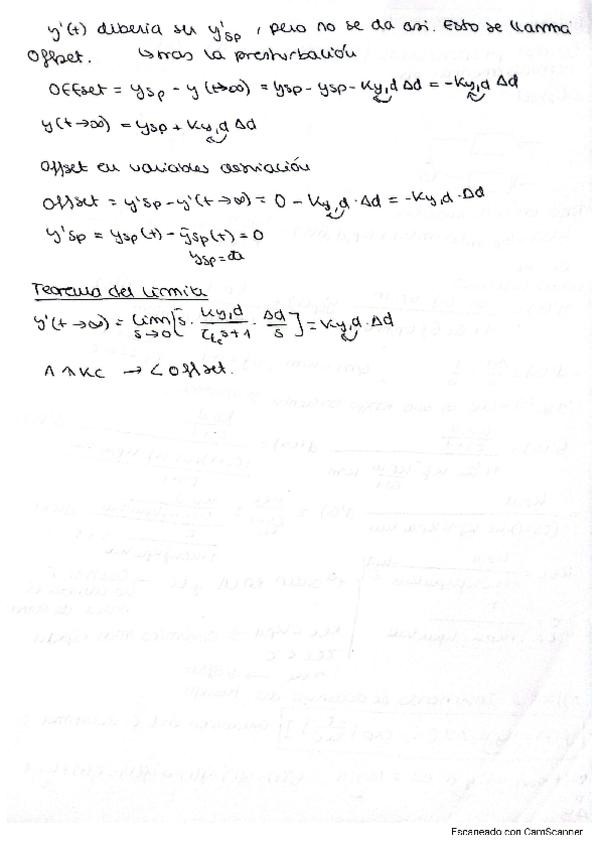 y'(t) debería ser y'sp, pero no se da así. Esto se llama
Offset. ↳tras la presturbación
OFFset = ysp - y(t→∞) = ysp - ysp - Ky,d Δd = -Ky,d Δd
y(t→∞) = ysp + Ky,d Δd
Offset en variables desviación
Offset = y'sp - y'(t→∞) = 0 - Ky,d · Δd = -Ky,d · Δd
y'sp = ysp(t) - ȳsp(t) = 0
ysp = cte
Teorema del límite
y'(t→∞) = lim s→0 [s · Ky,d / τLC s+1 · Δd / s] = Ky,d · Δd
∧∧Kc → < offset.
Escaneado con CamScanner